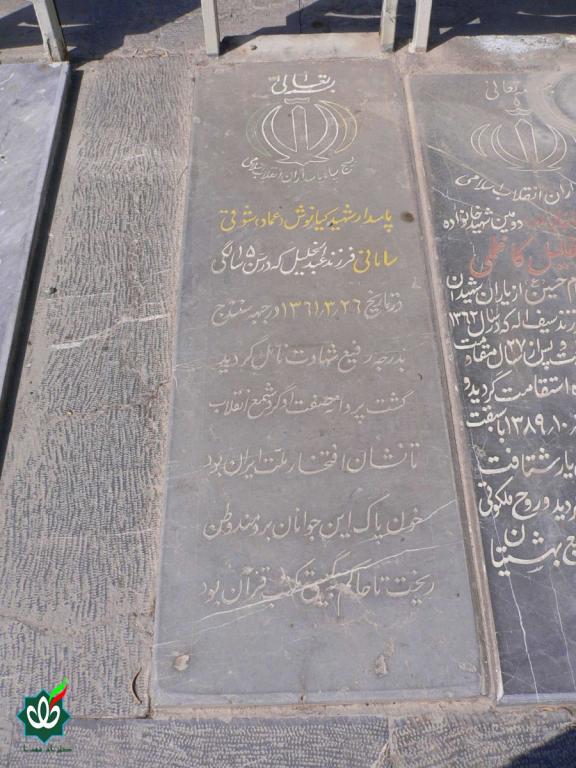 بسمه تعالی
پاسداران انقلاب اسلامی
پاسدار شهید کیانوش (عماد) شوقی
سامانی فرزند عبدالجلیل که در سن ۱۵ سالگی
در تاریخ ۱۳۶۱,۳,۲۶ در جبهه سنندج
بدرجه رفیع شهادت نائل گردید
گشت پروانه صفت او گرد شمع انقلاب
تا نشان افتخار ملت ایران بود
خون پاک این جوانان بر در وطن
ریخت تا حاکم بگیتی مکتب قرآن بود
تعالی
اران انقلاب اسلامی
دومین شهید خانواده
خلیل کاظمی
م حسین (ع) از یاران شهیدان
زند سیف اله که در سال ۱۳۶۲
ت و پس از ۲۷ سال مقاومت
ه استقامت گردید و
۱۳۸۹,۱۰, با سبقت
یار شتافت
ردید و روح ملکوتی
ع بهشتیان